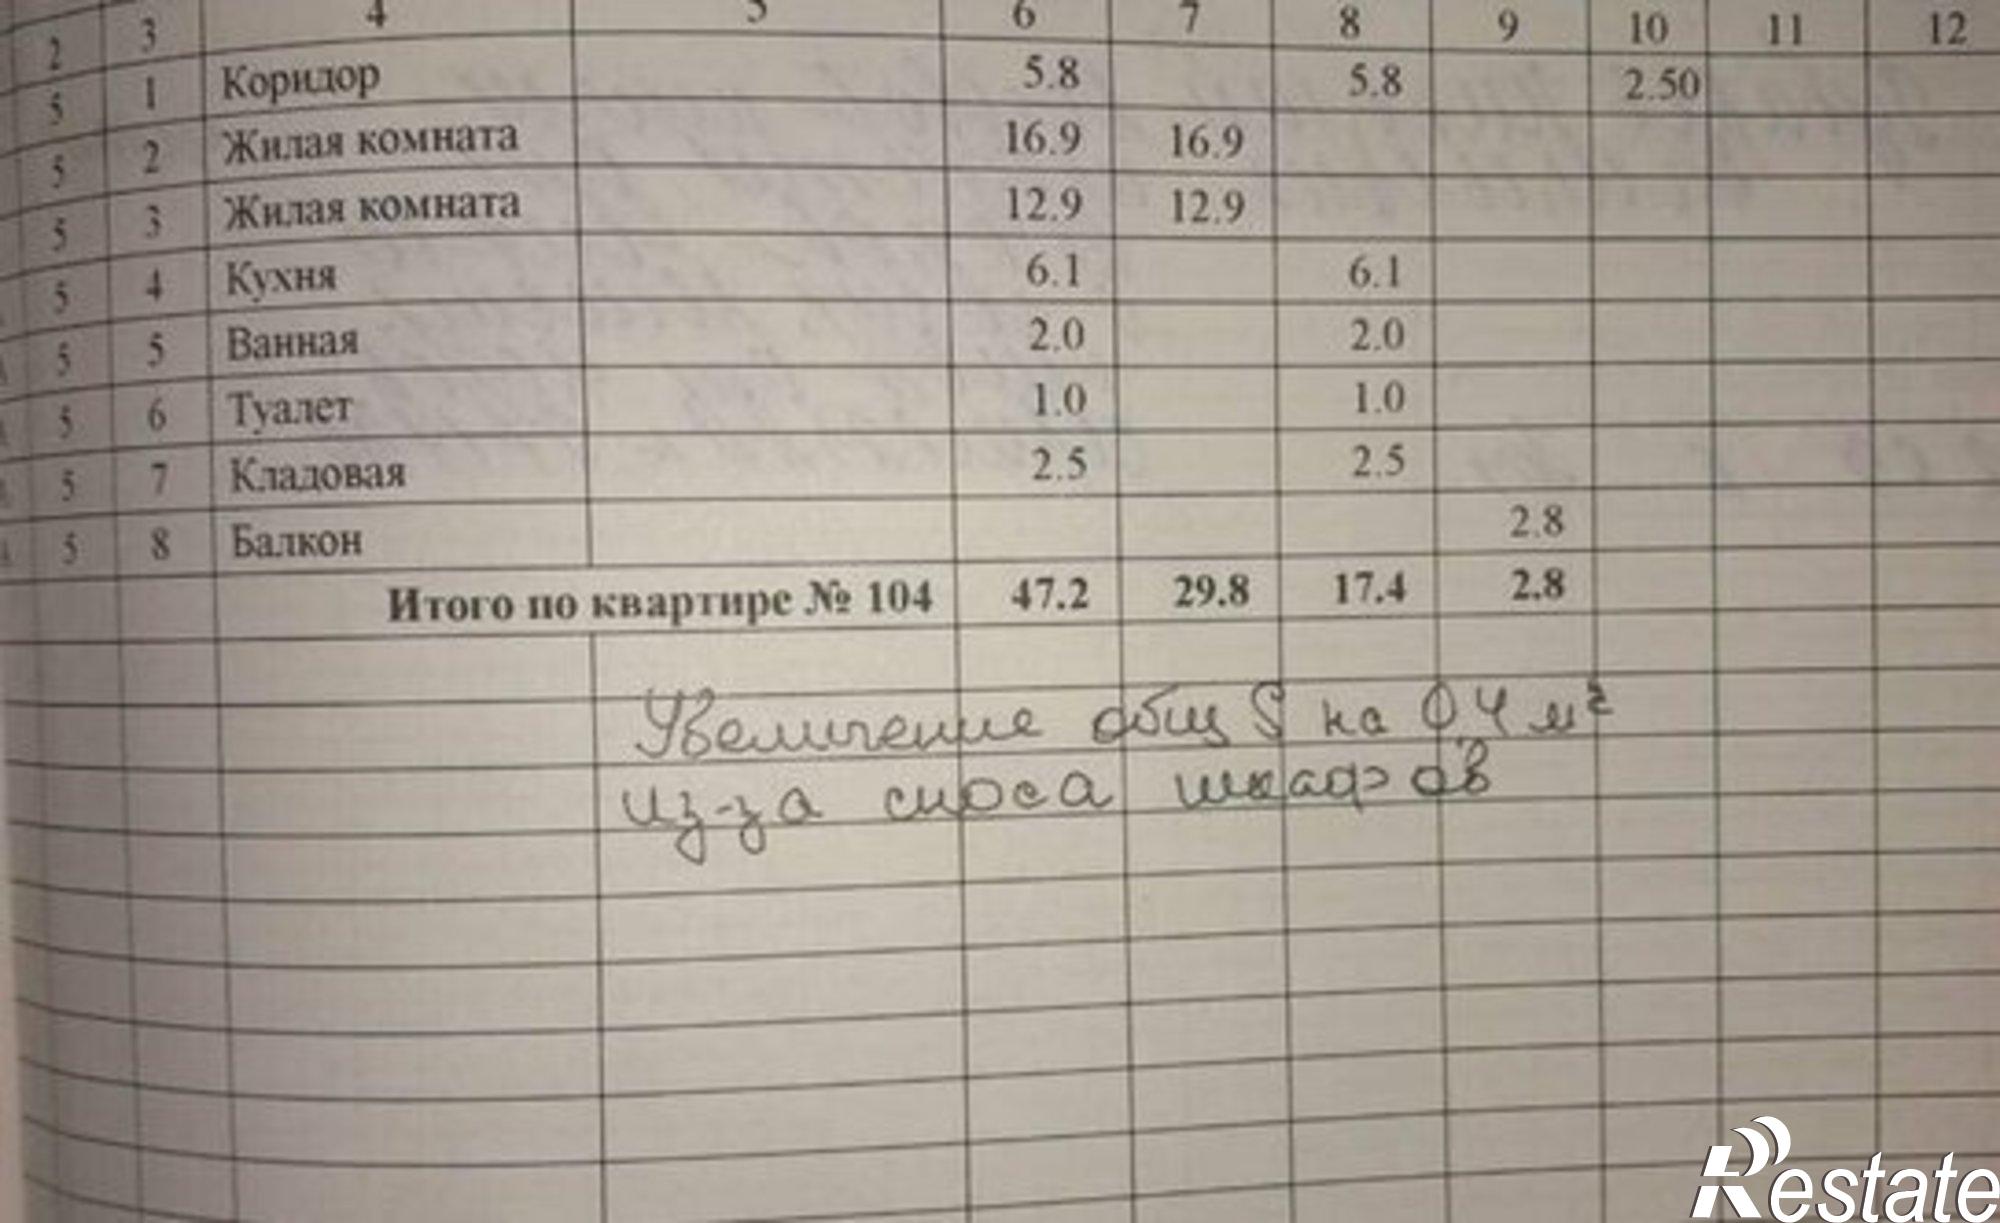 2 3 4 5 6 7 8 9 10 11 12
5 1 Коридор 5.8 5.8 2.50
5 2 Жилая комната 16.9 16.9
5 3 Жилая комната 12.9 12.9
5 4 Кухня 6.1 6.1
5 5 Ванная 2.0 2.0
5 6 Туалет 1.0 1.0
5 7 Кладовая 2.5 2.5
5 8 Балкон 2.8
Итого по квартире № 104 47.2 29.8 17.4 2.8
Увеличение общ S на 0.4 м²
из-за сноса шкафов
Restate